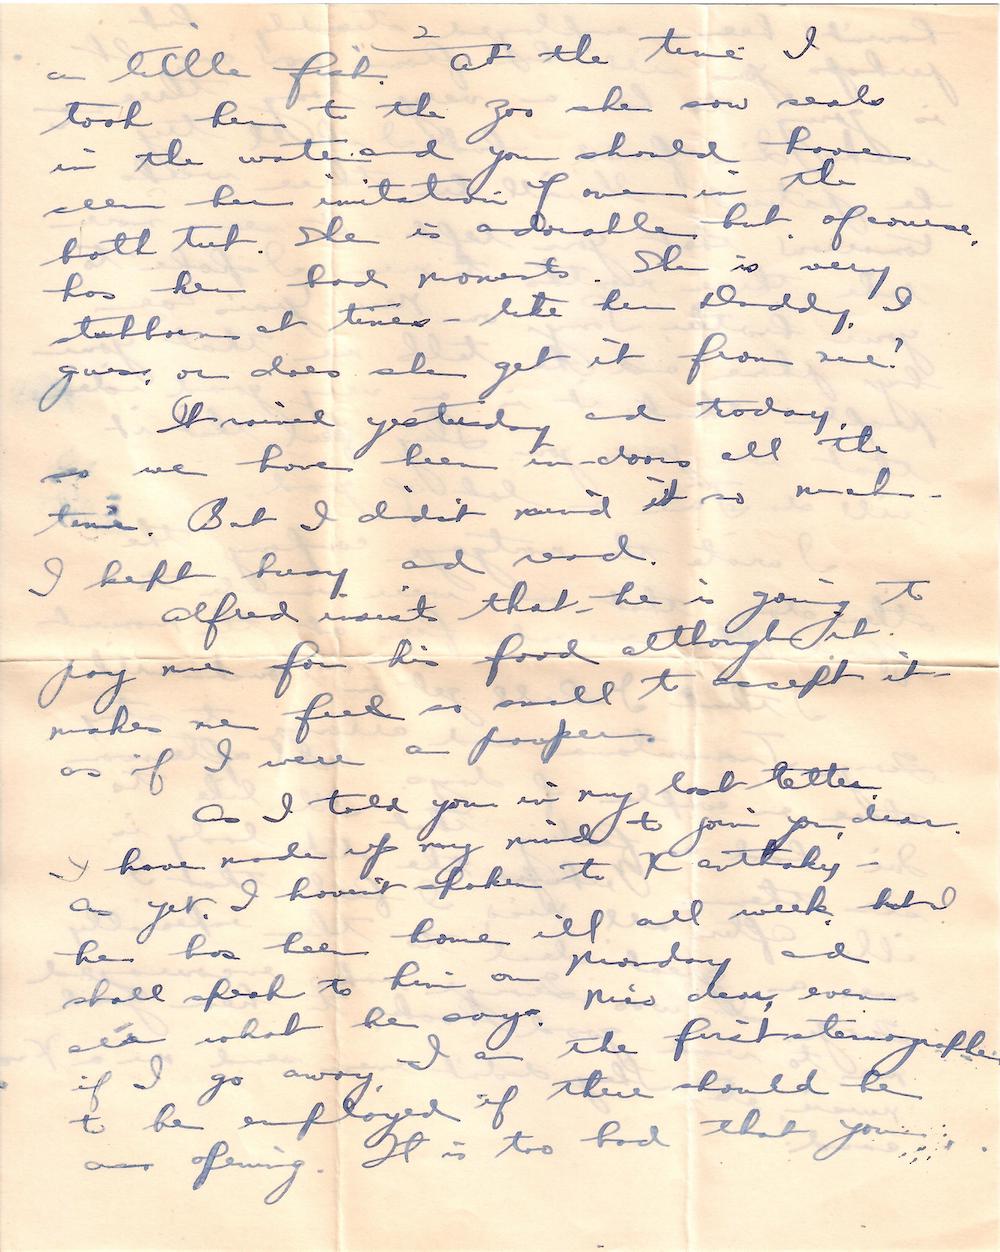 2
a little fish. At the time I
took her to the zoo she saw seals
in the water and you should have
seen her imitation of one in the
bath tub. She is adorable, but, of course,
has her bad moments. She is very
stubborn at times - like her Daddy, I
guess, or does she get it from me?
It rained yesterday and today,
so we have been in-doors all the
time. But I didn't mind it so much -
I kept busy and read.
Alfred insists that he is going to
pay me for his food although it
makes me feel so small to accept it -
as if I were a pauper.
As I told you in my last letter,
I have made up my mind to join you, dear.
As yet, I haven't spoken to
he has been home ill all week, but I
shall speak to him on Monday and
see what he says. dear, even
if I go away, I am the first stenographer
to be employed if there should be
an opening. It is too bad that you